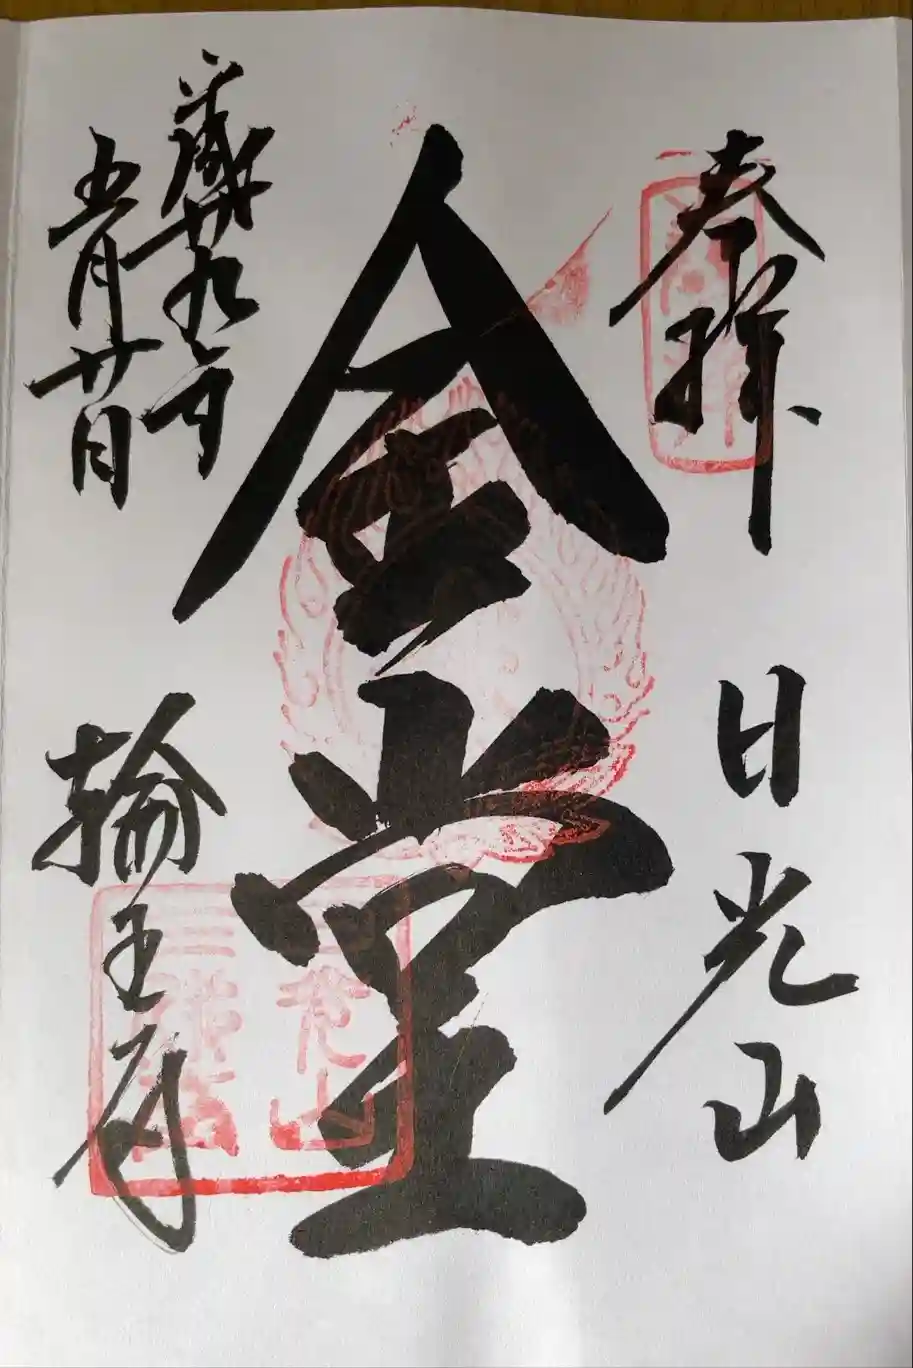 奉拝
日光山
金堂
平成廿九年
五月廿日
輪王寺